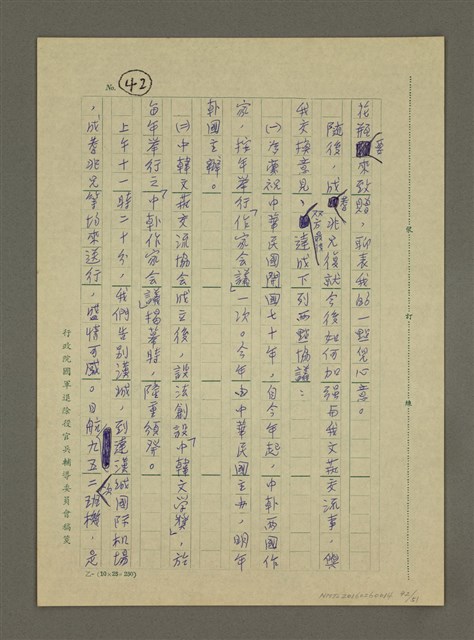 No. 42
花瓶舊來致贈，聊表我的一點兒心意。
隨後，成春兆兄復就今後如何加強與我文藝交流事，與
我交換意見，雙方並達成下列兩點協議：
㈠為慶祝中華民國開國七十年，自今年起，中韓兩國作
家，按年舉行「作家會議」一次。今年由中華民國主辦，明年
韓國主辦。
㈡中韓文藝交流協會成立後，設法創設「中韓文學獎」，於
每年舉行之「中韓作家會議」揭幕時，隆重頒發。
上午十一時二十分，我們告別漢城，到達漢城國際機場
，成春兆兄等均來送行，盛情可感。日航九五二次班機，是
裝 訂 線
行政院國軍退除役官兵輔導委員會稿箋
乙－(10×25=250)
NMTL20160260004 42/51